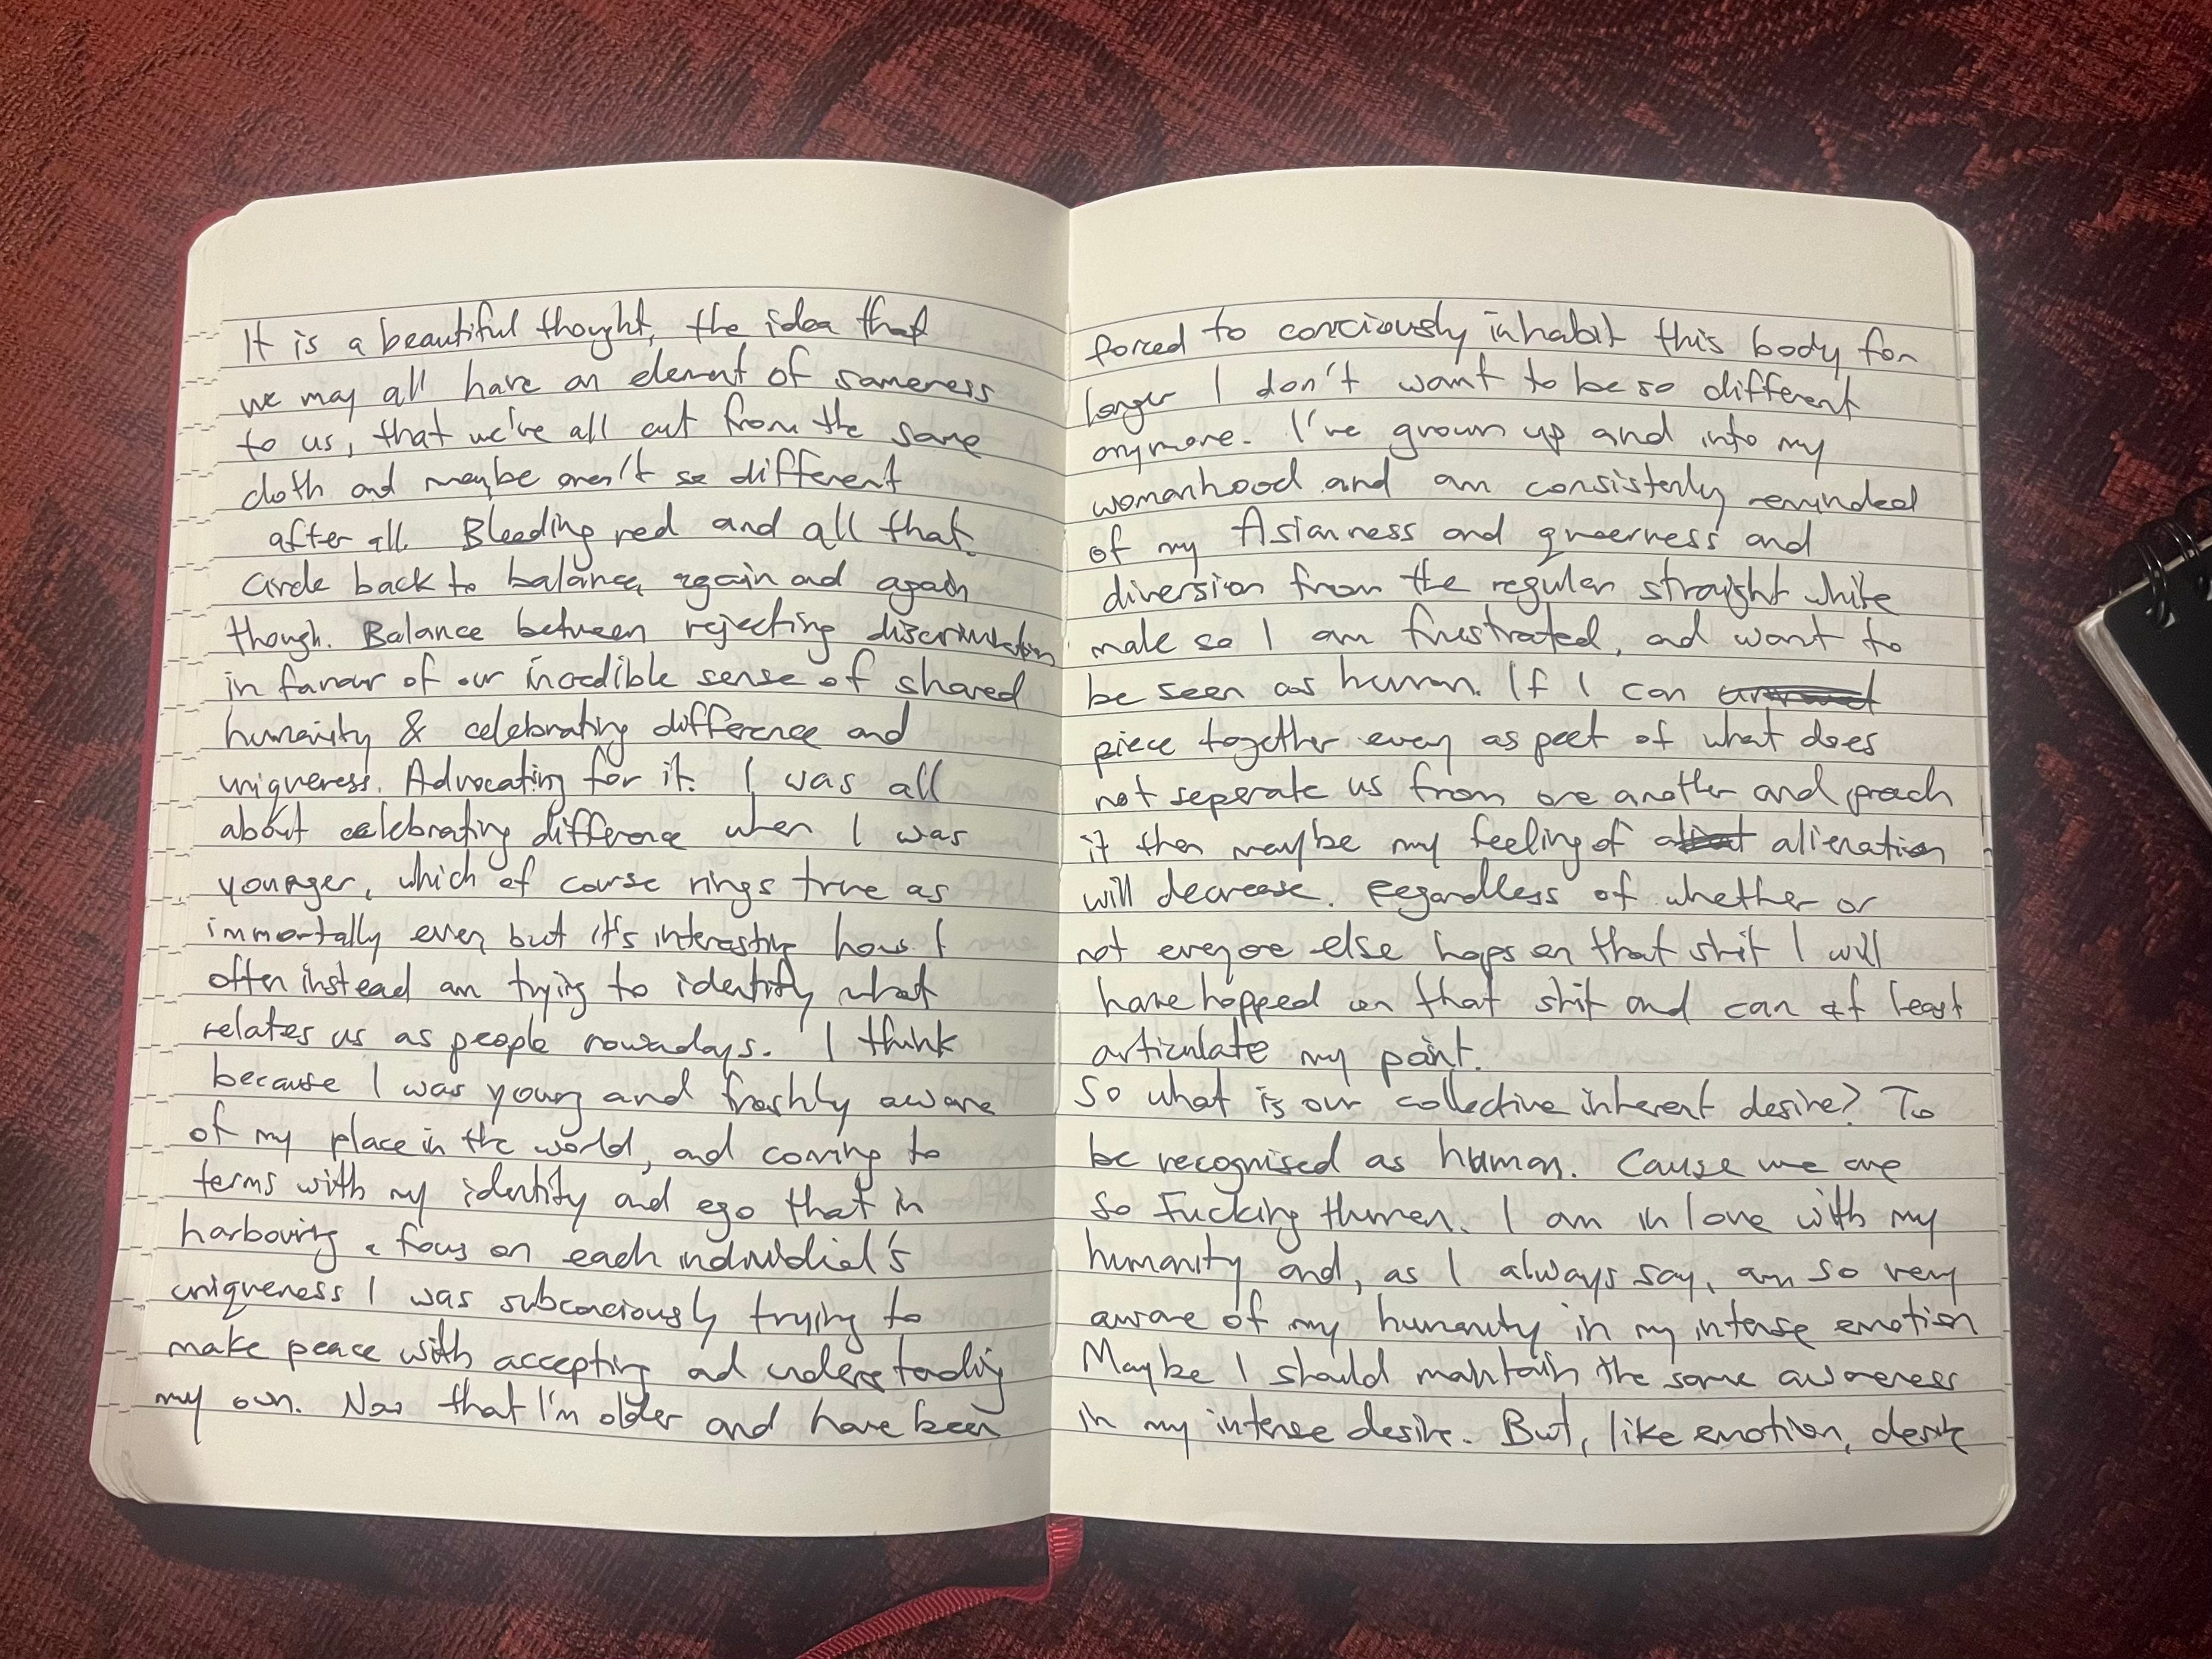 It is a beautiful thought, the idea that
we may all have an element of sameness
to us, that we've all cut from the same
cloth and maybe aren't so different
after all. Bleeding red and all that.
Circle back to balance, again and again
though. Balance between rejecting discrimination
in favour of our incredible sense of shared
humanity & celebrating difference and
uniqueness. Advocating for it. I was all
about celebrating difference when I was
younger, which of course rings true as
immortally ever, but it's interesting how I
often instead am trying to identify what
relates us as people nowadays. I think
because I was young and freshly aware
of my place in the world, and coming to
terms with my identity and ego that in
harbouring a focus on each individial's
uniqueness I was subconciously trying to
make peace with accepting and understanding
my own. Now that I'm older and have been
forced to conciously inhabit this body for
longer I don't want to be so different
anymore. I've grown up and into my
womanhood and am consistenly reminded
of my Asianness and queerness and
diversion from the regular straight white
male so I am frustrated, and want to
be seen as human. If I can
piece together every aspect of what does
not seperate us from one another and preach
it then maybe my feeling of alienation
will decrease. Regardless of whether or
not everyone else hops on that shit I will
have hopped on that shit and can at least
articulate my point.
So what is our collective inherent desire? To
be recognised as human. Cause we are
so Fucking Human. I am in love with my
humanity and, as I always say, am so very
aware of my humanity in my intense emotion
Maybe I should maintain the same awareness
in my intense desire. But, like emotion, desire